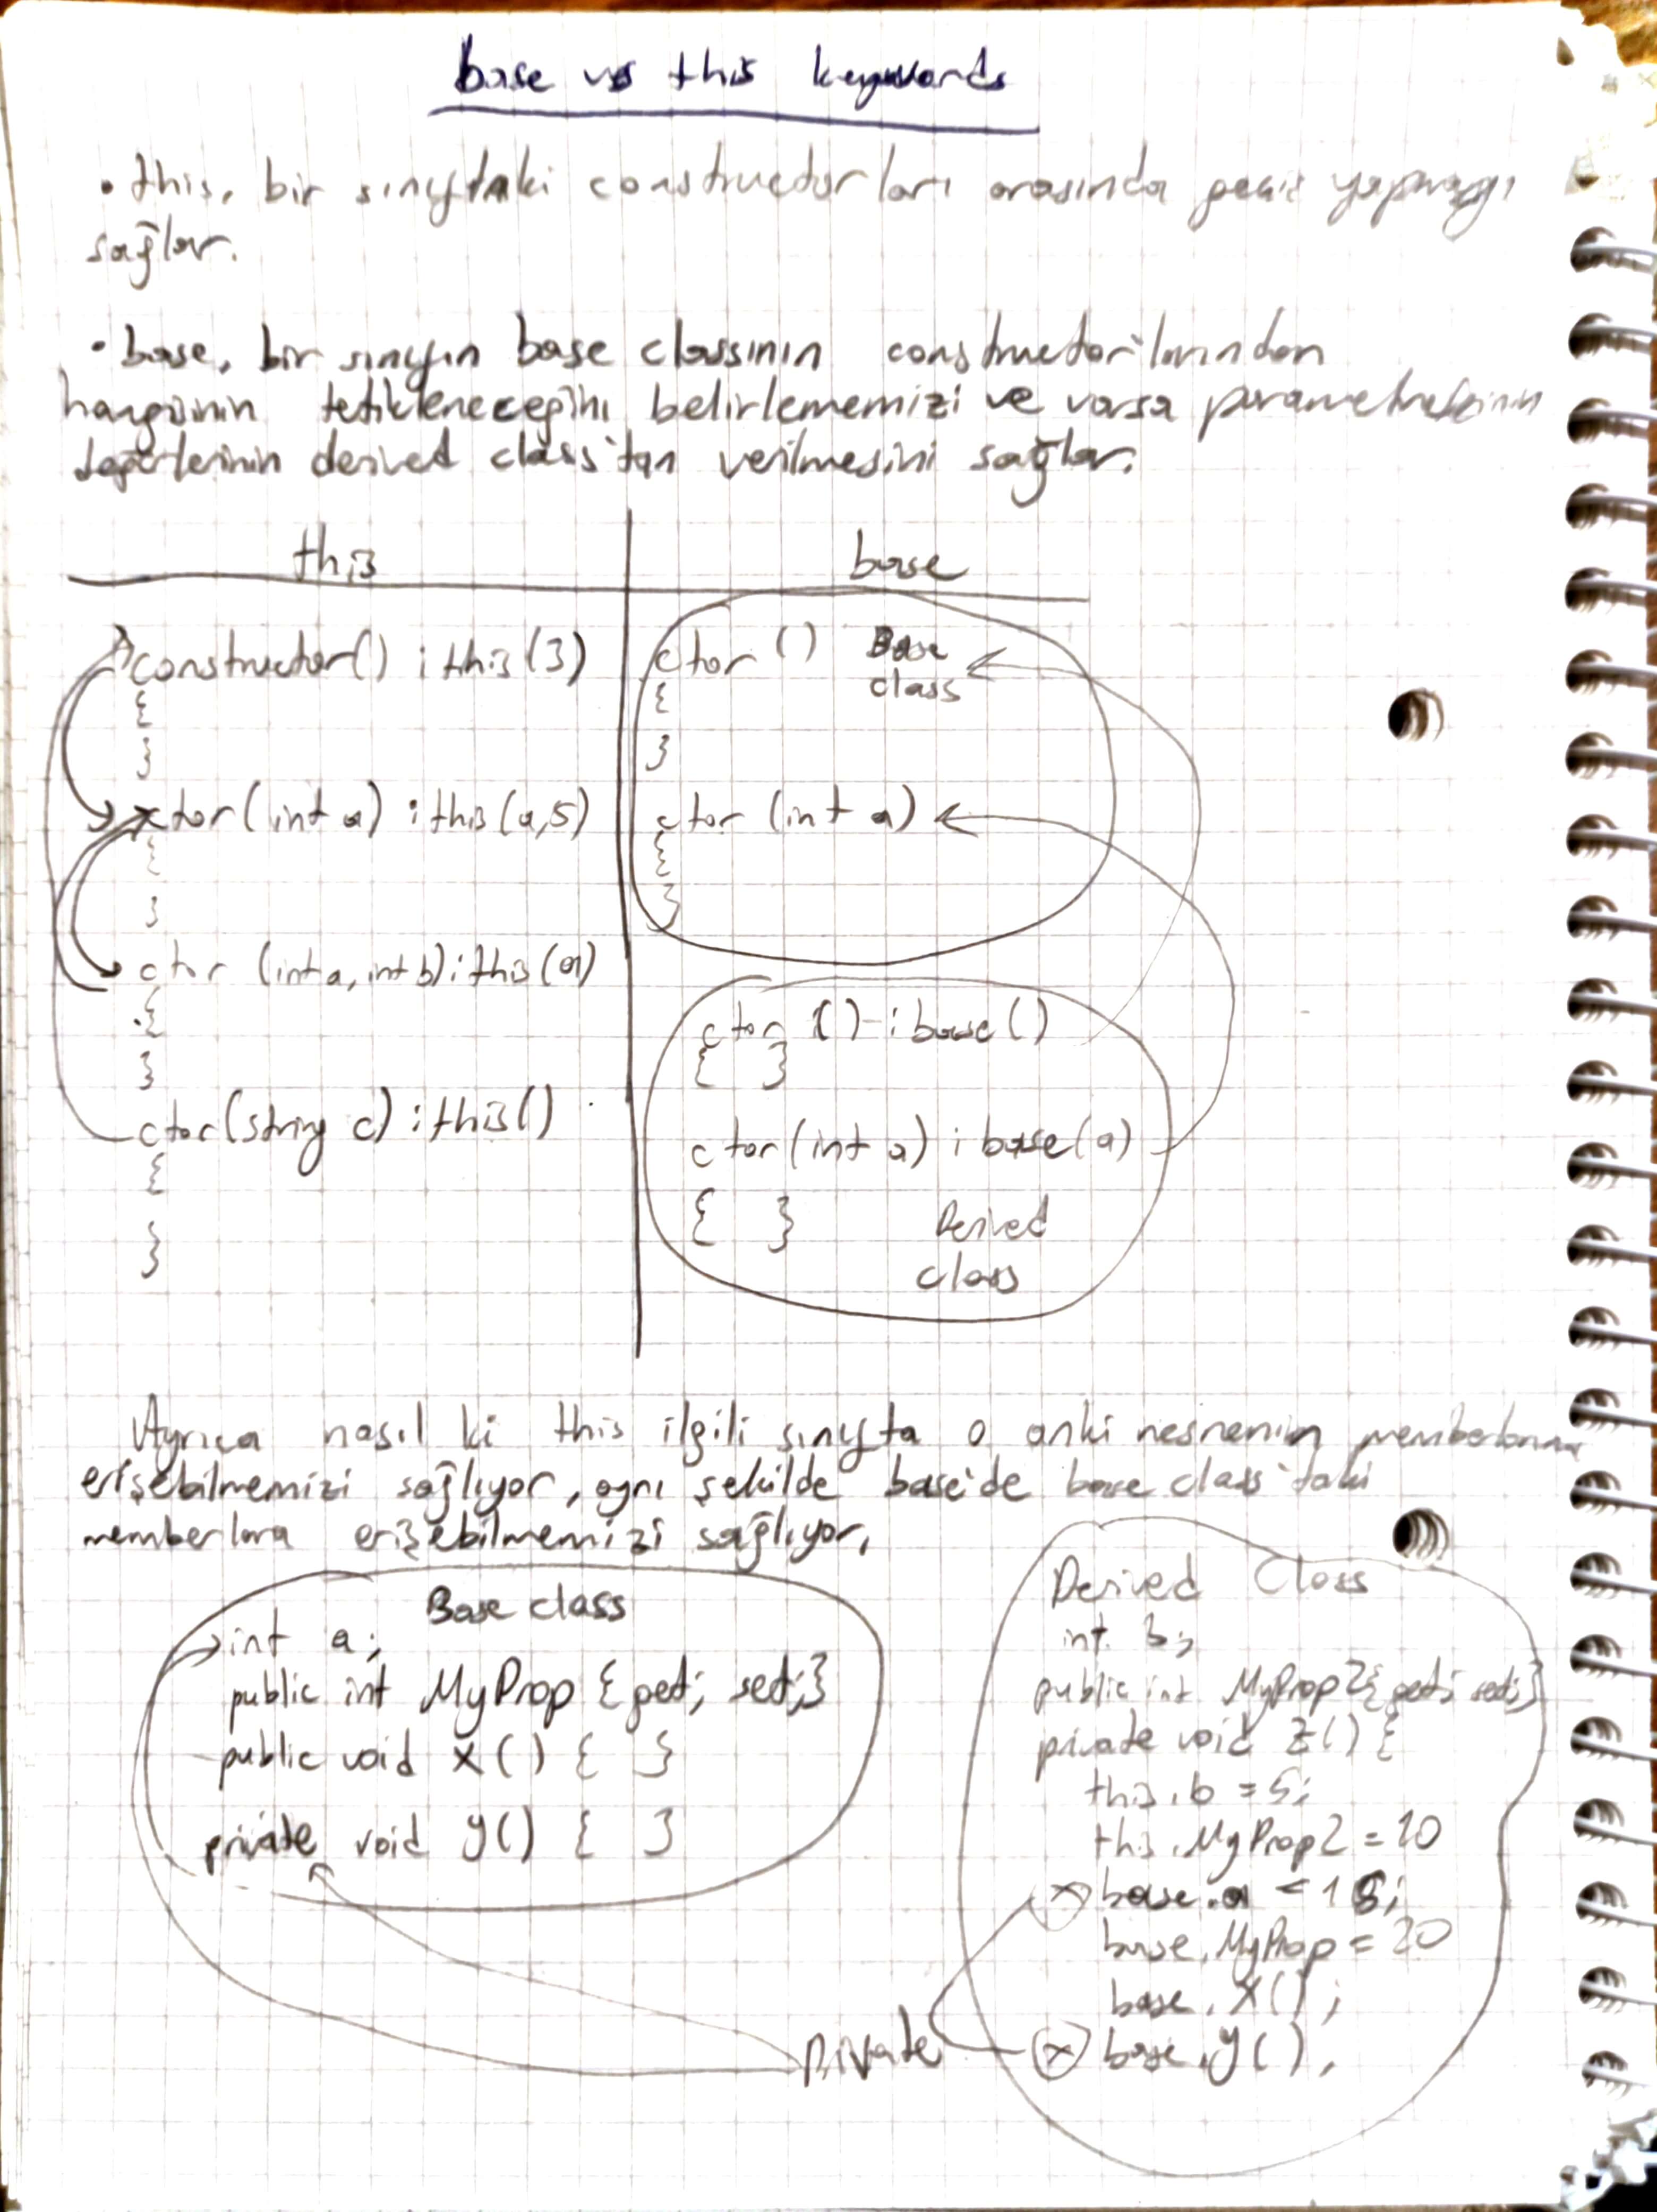 base vs this keywords
• this, bir sınıftaki constructorları arasında geçiş yapmayı
sağlar.
• base, bir sınıfın base classının constructor'larından
hangisinin tetikleneceğini belirlememizi ve varsa parametrelerinin
değerlerinin derived class'tan verilmesini sağlar.
this
constructor() : this(3)
{
}
ctor(int a) : this(a,5)
{
}
ctor (int a, int b) : this(a)
{
}
ctor(string c) : this()
{
}
base
ctor () Base
class
{
}
ctor (int a)
{
}
ctor () : base()
{ }
ctor(int a) : base(a)
{ } Derived
class
Ayrıca nasıl ki this ilgili sınıfta o anki nesnenin memberlarına
erişebilmemizi sağlıyor, aynı şekilde base'de base class'taki
memberlara erişebilmemizi sağlıyor.
Base class
int a;
public int MyProp { get; set; }
public void X() { }
private void Y() { }
Derived Class
int b;
public int MyProp2 { get; set; }
private void Z() {
this.b = 5;
this.MyProp2 = 10
x base.a = 15;
base.MyProp = 20
base.X();
x base.Y();
private